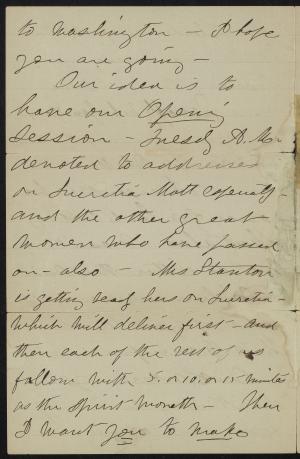 to Washington - I hope
you are going -
Our idea is to
have our Opening
Session - Tuesdy A.M.
devoted to addresses
on Lucretia Mott especially -
and the other great
women who have passed
on - also - Mrs Stanton
is getting ready hers on Lucretia -
which will deliver first - and
then each of the rest of us
follow with 5. or 10. or 15 minutes
as the spirit moveth - Then
I want you to make